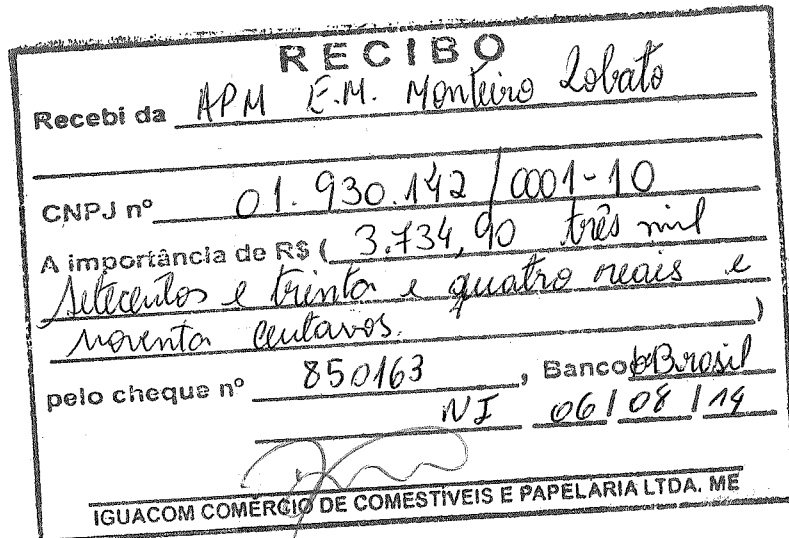 RECIBO
Recebi da APM E.M. Monteiro Lobato
CNPJ nº 01.930.142/0001-10
A importância de R$ ( 3.734,90 três mil
setecentos e trinta e quatro reais e
noventa centavos. )
pelo cheque nº 850163, Banco do Brasil
NI 06/08/14
IGUACOM COMÉRCIO DE COMESTÍVEIS E PAPELARIA LTDA. ME